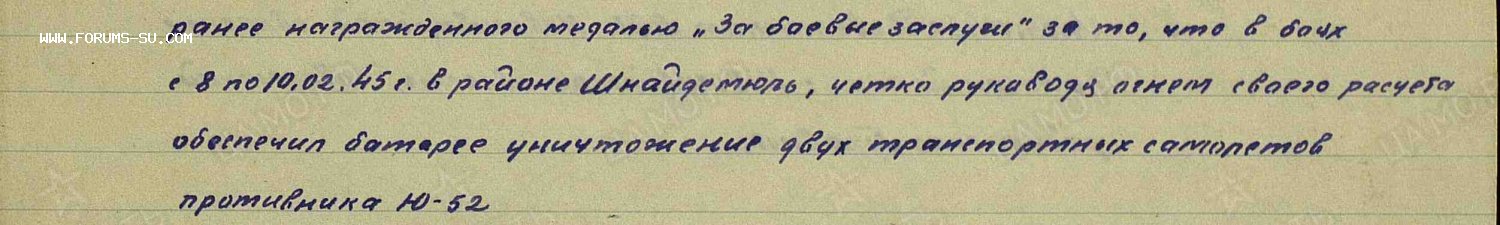 ранее награжденного медалью „За боевые заслуги" за то, что в боях
WWW.FORUMS-SU.COM
с 8 по 10.02.45г. в районе Шнайдемюль, четко руководя огнем своего расчета
обеспечил батарее уничтожение двух транспортных самолетов
противника Ю-52